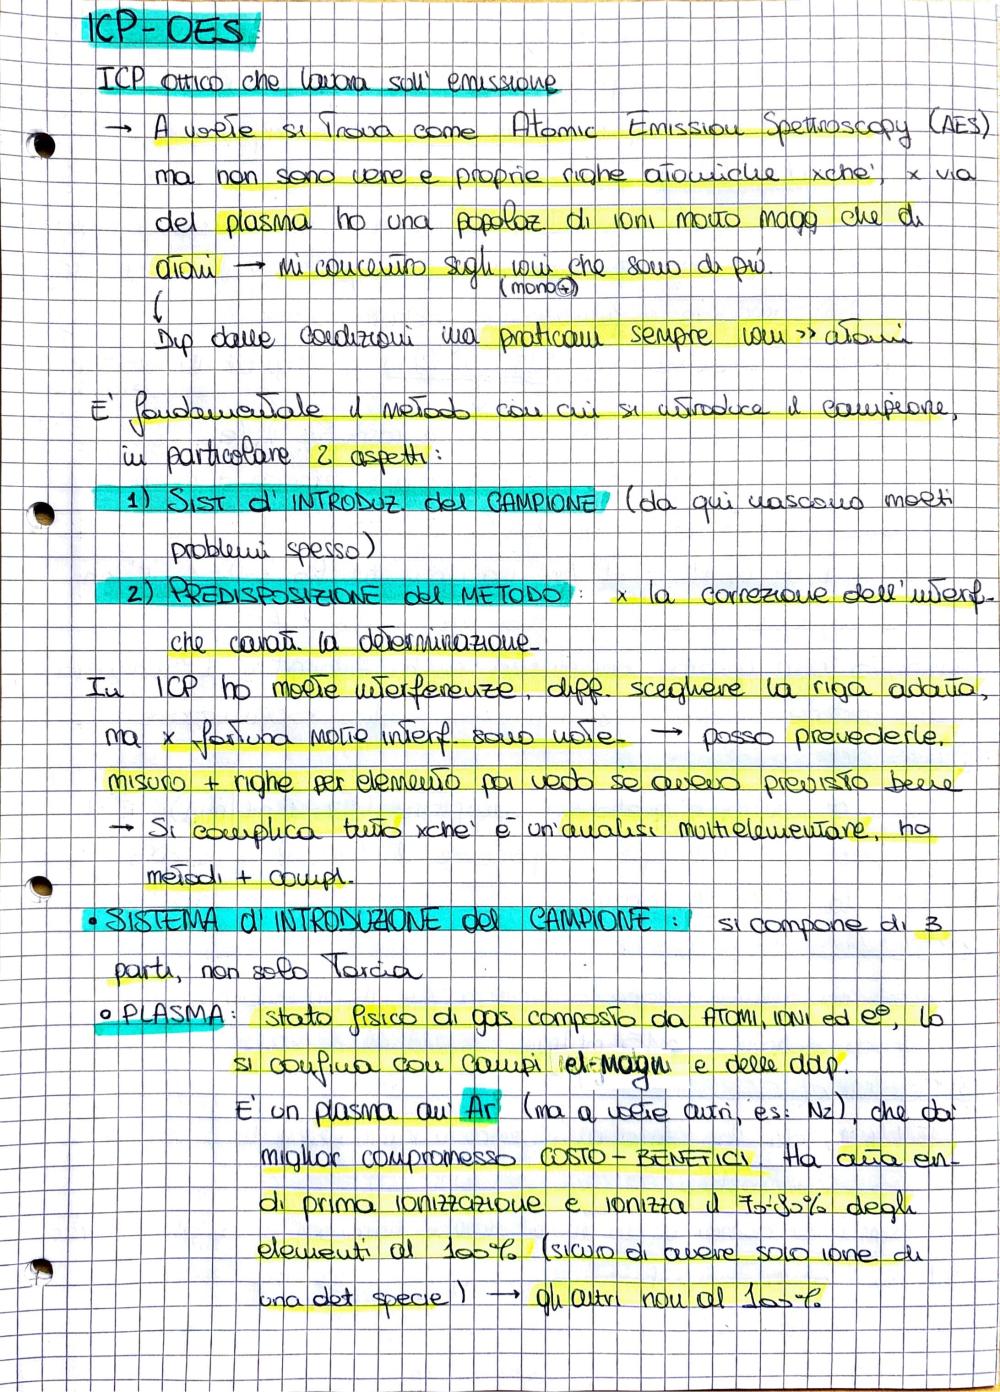 ICP-OES
ICP ottico che lavora sull' emissione
→ A volte si trova come Atomic Emission Spettroscopy (AES)
ma non sono vere e proprie righe atomiche xchè, x via
del plasma ho una popolaz. di ioni molto magg che di
atomi → Mi concentro sugli ioni che sono di più.
(mono⊕)
↓
Dip dalle condizioni ma praticam sempre ioni >> atomi
E' fondamentale il metodo con cui si introduce il campione,
in particolare 2 aspetti:
1) SIST d' INTRODUZ. del CAMPIONE (da qui nascono molti
problemi spesso)
2) PREDISPOSIZIONE del METODO: x la correzione dell'interf-
che caratt. la determinazione
In ICP ho molte interferenze, diff. scegliere la riga adatta,
ma x fortuna molte interf. sono note → posso prevederle,
misuro + righe per elemento poi vedo se avevo previsto bene
→ Si complica tutto xchè è un'analisi multielementare, ho
metodi + compl.
• SISTEMA d' INTRODUZIONE del CAMPIONE: si compone di 3
parti, non solo Torcia
∘ PLASMA: stato fisico di gas composto da ATOMI, IONI ed e⊖, lo
si confina con campi el-magn e delle ddp.
E' un plasma qui Ar (ma a volte altri, es: N2), che dà
miglior compromesso COSTO-BENEFICI. Ha alta en-
di prima ionizzazione e ionizza il 75-80% degli
elementi al 100% (sicuro di avere solo ione di
una det specie) → gli altri non al 100%